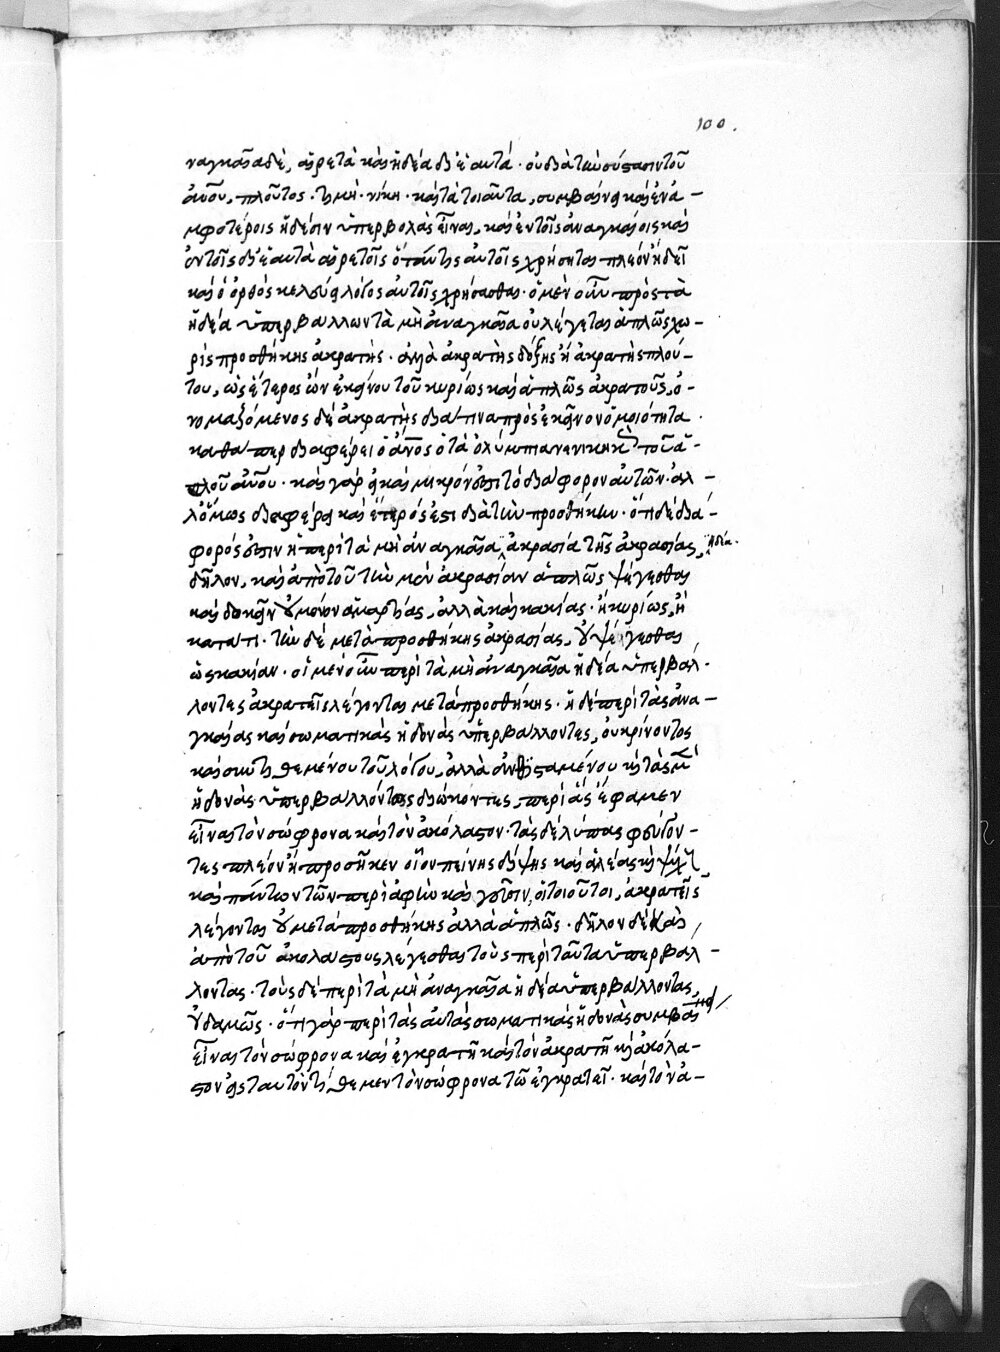 100.
ναγκαῖα δὲ, αἱρετὰ καὶ ἡδέα δι' ἑαυτά· οὐ διὰ τὴν σύστασιν τοῦ
ἀνου, πλοῦτος· τιμὴ· νίκη· καὶ τὰ τοιαῦτα, συμβαίνει καὶ ἐν ἀ–
μφοτέροις ἡδέσιν ὑπερβολὰς εἶναι, καὶ ἐν τοῖς ἀναγκαίοις καὶ
ἐν τοῖς δι' ἑαυτὰ αἱρετοῖς ὅταν τις αὐτοῖς χρήσηται πλέον ἢ δεῖ
καὶ ὁ ὀρθὸς κελεύει λόγος αὐτοῖς χρήσασθαι· ὁ μὲν οὖν πρὸς τὰ
ἡδέα ὑπερβάλλων τὰ μὴ ἀναγκαῖα οὐ λέγεται ἁπλῶς χω–
ρὶς προσθήκης ἀκρατής· ἀλλὰ ἀκρατὴς δόξης ἢ ἀκρατὴς πλού–
του, ὡς ἕτερος ὢν ἐκείνου τοῦ κυρίως καὶ ἁπλῶς ἀκρατοῦς, ὀ–
νομαζόμενος δὲ ἀκρατὴς διά τινα πρὸς ἐκεῖνον ὁμοιότητα·
καθάπερ διαφέρει ὁ ἄνος ὁ τὰ ὀλύμπια νενικηκὼς τοῦ ἁ–
πλοῦ ἀνου· καὶ γὰρ εἰ καὶ μικρόν ἐστι τὸ διάφορον αὐτῶν· ἀλ–
λ' ὅμως διαφέρει καὶ ἕτερός ἐστι διὰ τὴν προσθήκην· ὅτι δὲ διά–
φορός ἐστιν ἡ περὶ τὰ μὴ ἀναγκαῖα ἀκρασία τῆς ἀκρασίας, ἡδέα·
δῆλον, καὶ ἀπὸ τοῦ τὴν μὲν ἀκρασίαν ἁπλῶς ψέγεσθαι
καὶ δοκεῖν οὐ μόνον ἁμαρτίας, ἀλλὰ καὶ κακίας· ἢ κυρίως, ἢ
κατά τι· τὴν δὲ μετὰ προσθήκης ἀκρασίας, οὐ ψέγεσθαι
ὡς κακίαν· οἱ μὲν οὖν περὶ τὰ μὴ ἀναγκαῖα ἡδέα ὑπερβάλ–
λοντες ἀκρατεῖς λέγονται μετὰ προσθήκης· ἡ δὲ περὶ τὰς ἀνα–
γκαίας καὶ σωματικὰς ἡδονὰς ὑπερβάλλοντες, οὐ κρίνοντος
καὶ συντιθεμένου τοῦ λόγου, ἀλλὰ ἀνθισταμένου καὶ τὰς
ἡδονὰς ὑπερβαλλόντως διώκοντες, περὶ ἃς ἔφαμεν
εἶναι τὸν σώφρονα καὶ τὸν ἀκόλαστον· τὰς δὲ λύπας φεύγον–
τες πλέον ἢ προσῆκεν οἷον πείνης δίψης καὶ ἀλέας καὶ ψύχη
καὶ πάντων τῶν περὶ ἁφὴν καὶ γεῦσιν, οἱ τοιοῦτοι, ἀκρατεῖς
λέγονται οὐ μετὰ προσθήκης ἀλλὰ ἁπλῶς· δῆλον δὲ καὶ
ἀπὸ τοῦ ἀκολάστους λέγεσθαι τοὺς περὶ ταῦτα ὑπερβάλ–
λοντας· τοὺς δὲ περὶ τὰ μὴ ἀναγκαῖα ἡδέα ὑπερβάλλοντας,
οὐδαμῶς· ὅτι γὰρ περὶ τὰς αὐτὰς σωματικὰς ἡδονὰς συμβαίνει
εἶναι τὸν σώφρονα καὶ ἐγκρατῆ καὶ τὸν ἀκρατῆ καὶ ἀκόλα–
στον εἰς ταυτὸν τίθεμεν τὸν σώφρονα τῷ ἐγκρατεῖ· καὶ τὸν ἀ–